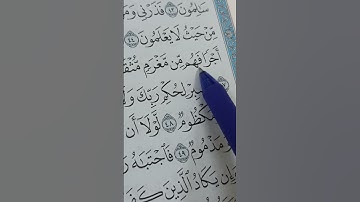 سَٰلِمُونَ ٤٣ فَذَرْنِي وَمَ
مِّنْ حَيْثُ لَا يَعْلَمُونَ ٤٤
أَجْرًا فَهُم مِّن مَّغْرَمٍ مُّثْقَ
بِرْ لِحُكْمِ رَبِّكَ وَلَا
كْظُومٌ ٤٨ لَّوْلَآ أَن
مَذْمُومٌ ٤٩ فَٱجْتَبَٰهُ رَ
وَإِن يَكَادُ ٱلَّذِينَ كَفَ